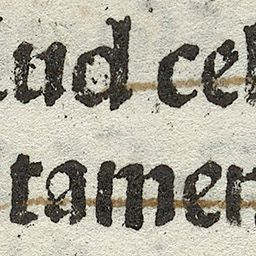 iud cel
tamen